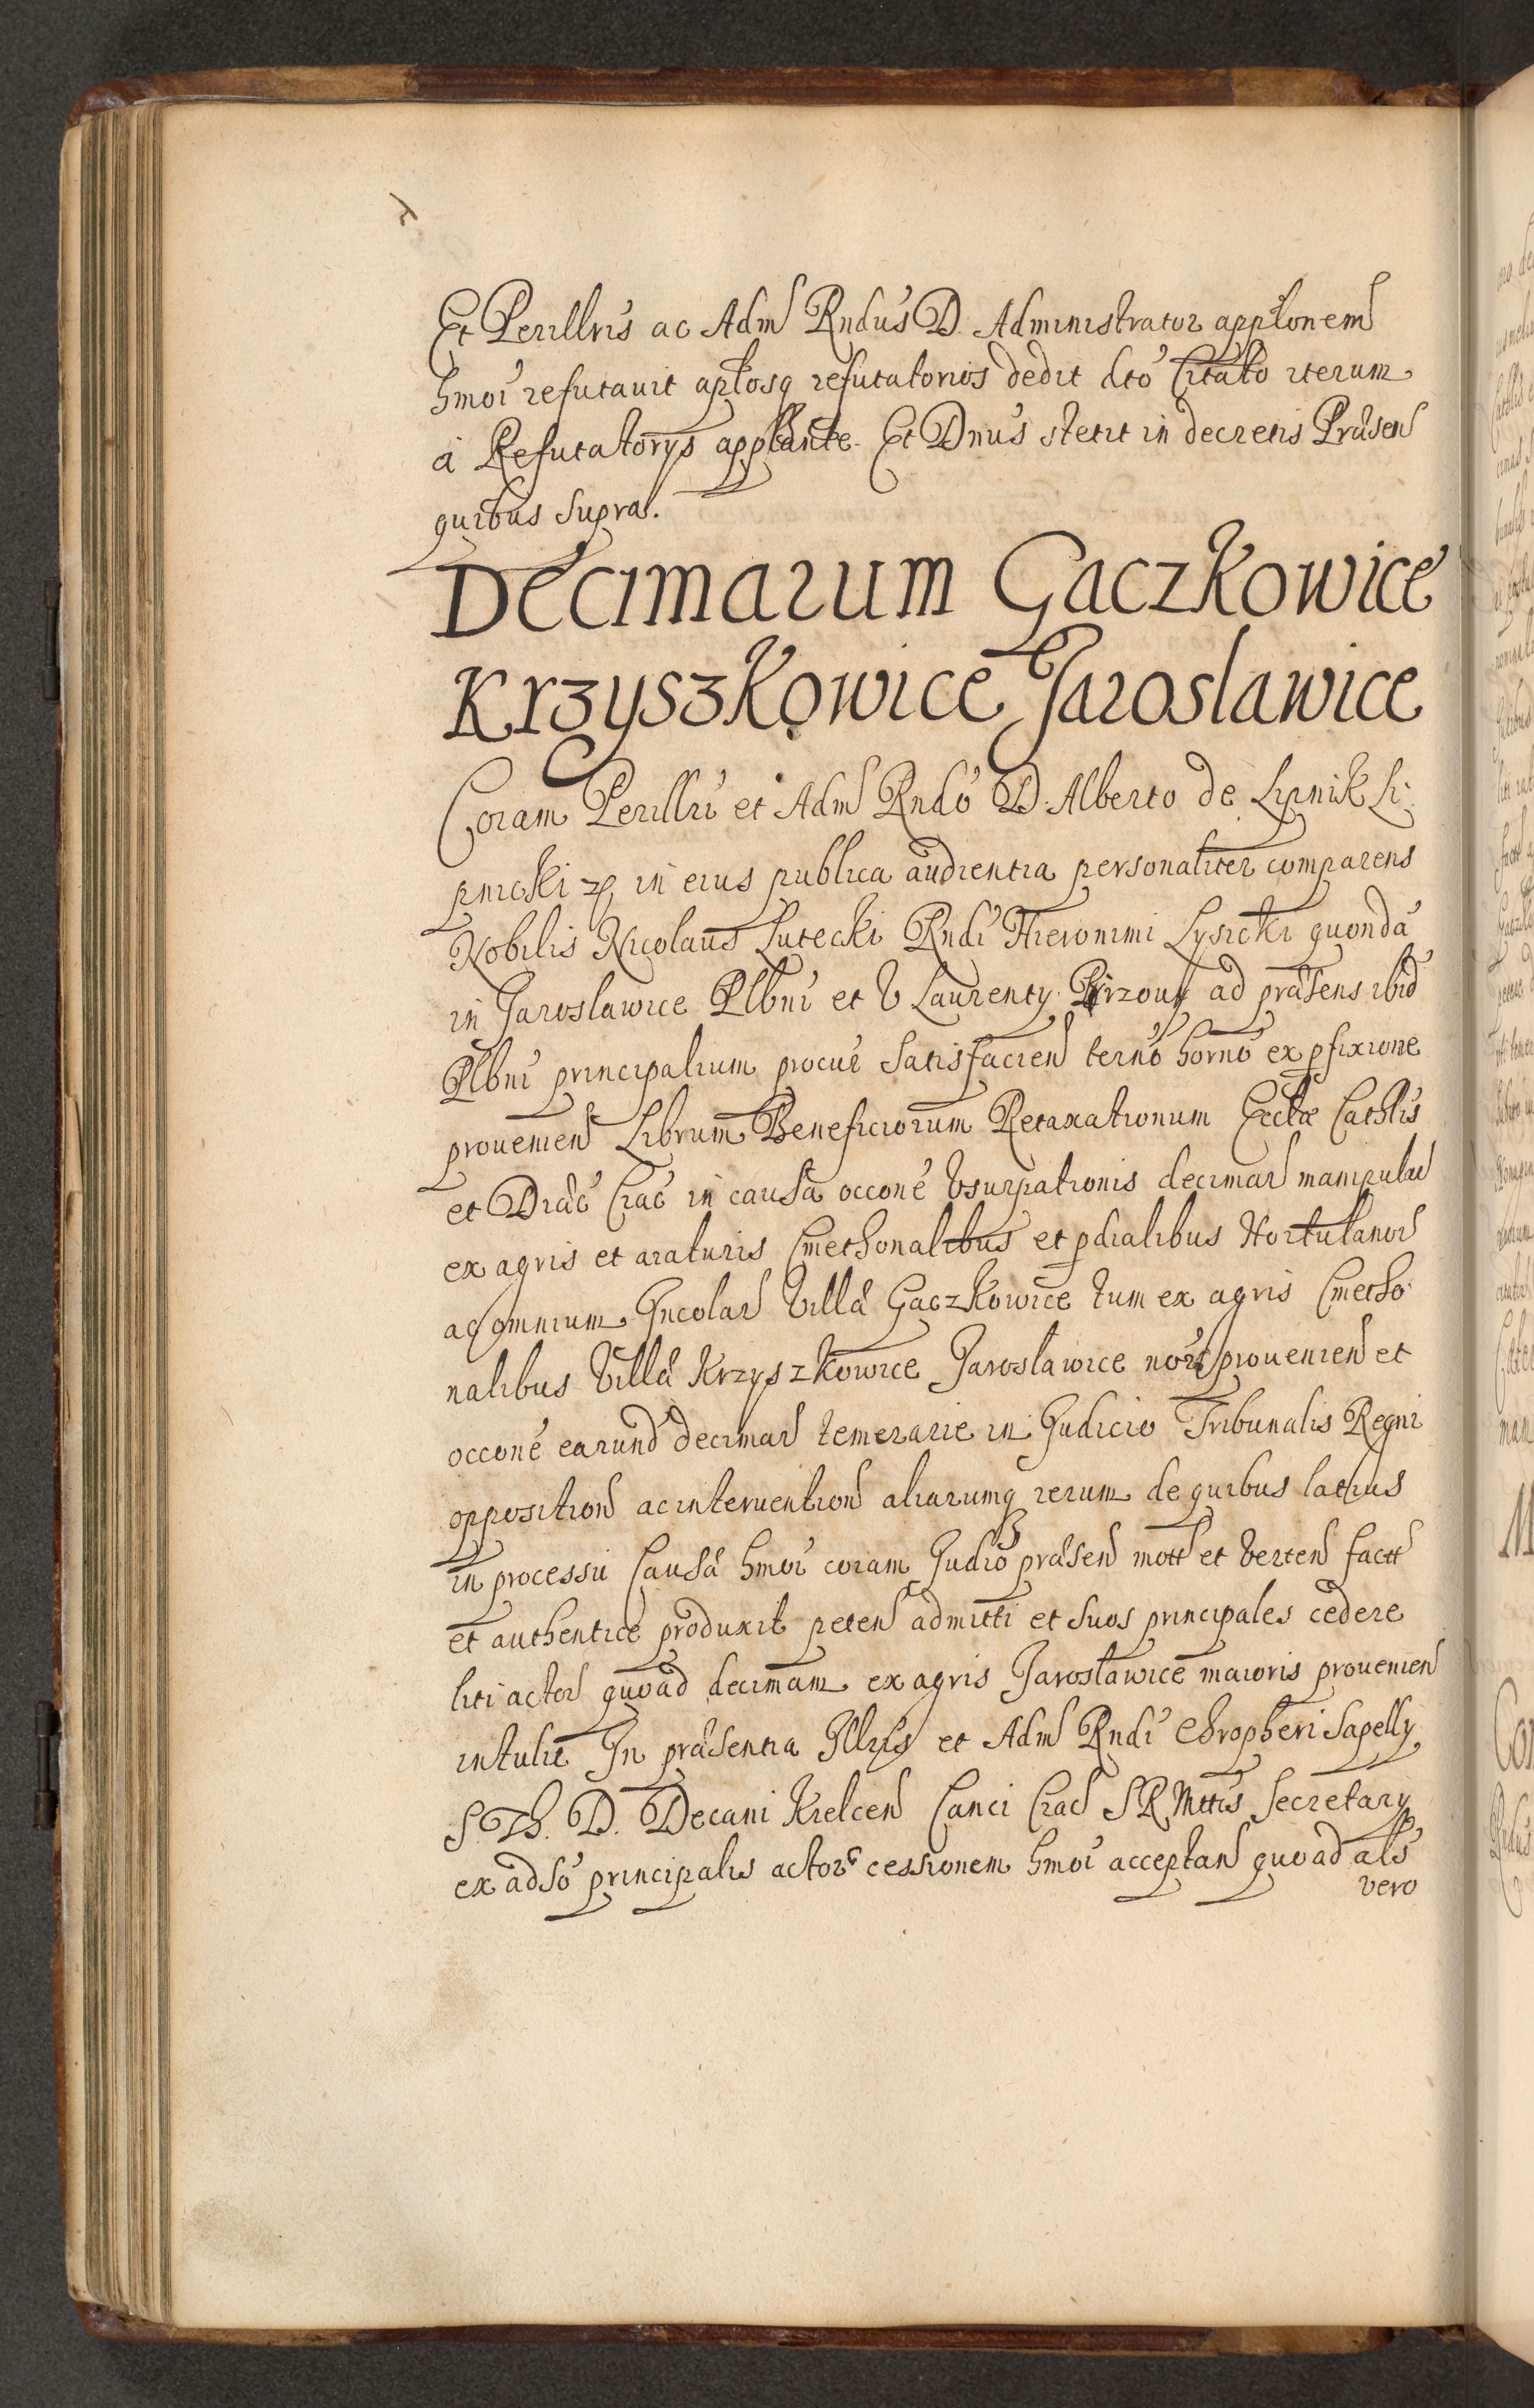 Et Perillris ac Adm Rndus D. Administrator applonem
hmoi refutauit aplosq refutatorios dedit dto Citato iterum
a Refutatorys applante. Et Dnus stetit in decretis Præsen
quibus supra.
Decimarum Gaczkowice
Krzyszkowice Jaroslawice
Coram Perillri et Adm Rndo D. Alberto de Lipnik Li
pnicki in eius publica audientia personaliter comparens
Nobilis Nicolaus Lutecki Rndi Hieronimi Lysicki quonda
in Jaroslawice Plbni et V Laurenty ad præsens ibid
Plbni principalium procur Satisfacien termo horno ex pfixione
prouenien Librum Beneficiorum Retaxationum Ecclæ Cathlis
et Diæc Crac in causa occone Vsurpationis decimar manipular
ex agris et araturis Cmethonalibus et pdialibus Hortulanor
ac omnium Incolar Villæ Gaczkowice tum ex agris Cmetho
nalibus Villæ Krzyszkowice Jaroslawice prouenien et
occone earund decimar temerarie in Judicio Tribunalis Regni
opposition ac intervention aliarumq rerum de quibus latius
in processu Causæ hmoi coram Judio præsen mott et verten factt
et authentice produxit peten admitti et suos principales cedere
liti actor quoad decimam ex agris Jaroslawice maioris prouenien
intulit In præsentia Illris et Adm Rndi Chropheri Sapelly
S. Th. D. Decani Kielcen Canci Crac S R Mttis Secretary
ex adso principalis actor cessionem hmoi acceptan quoad als
vero